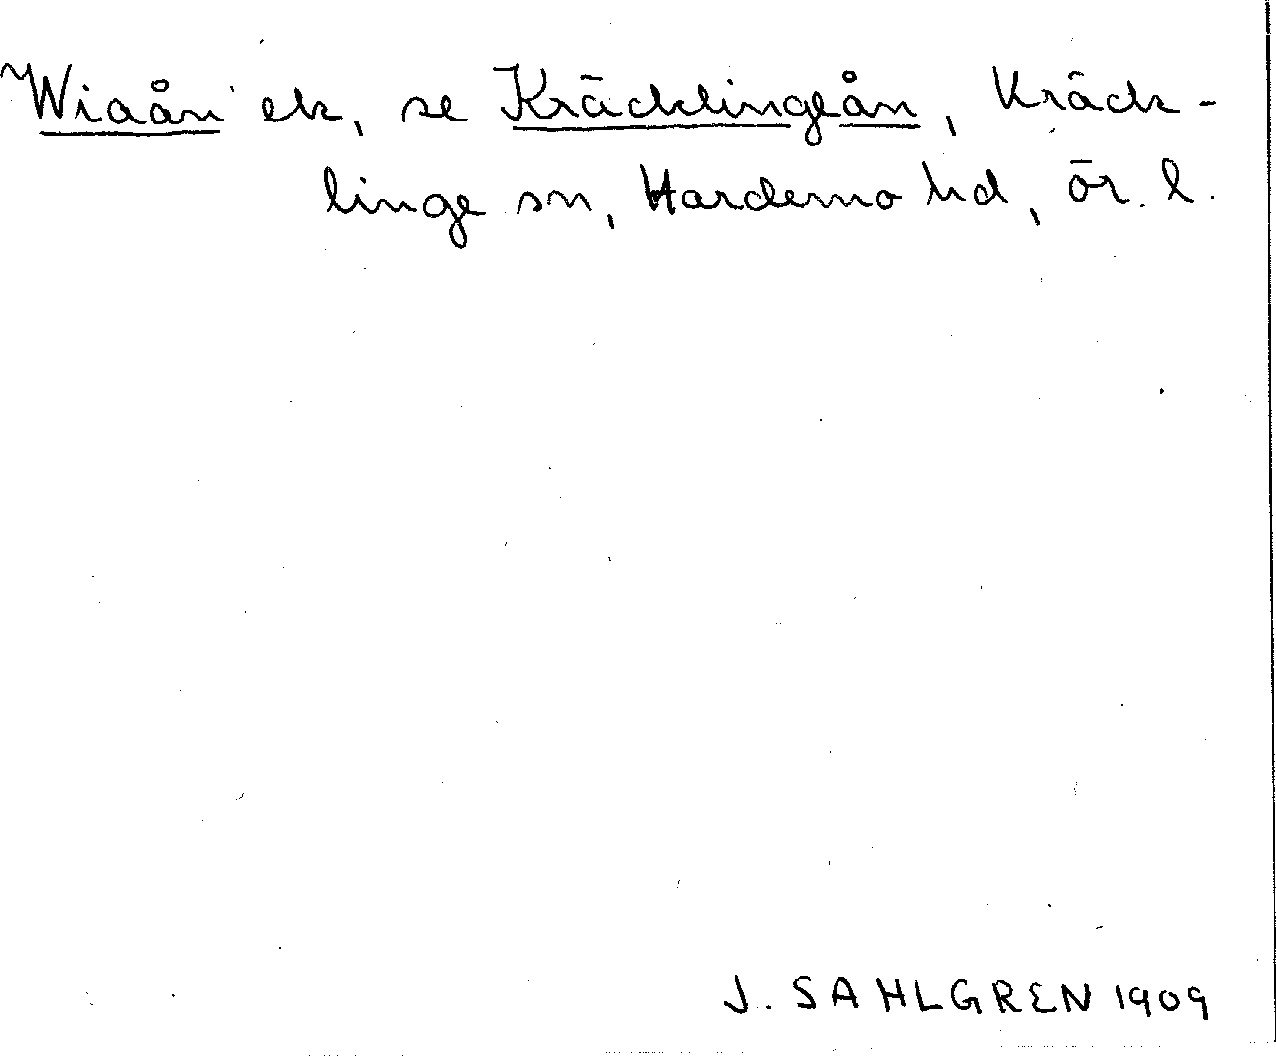 Wiaån ek, se Kräcklingeån, Kräck-
linge sn, Hardemo hd, ör. l.
J. SAHLGREN 1909